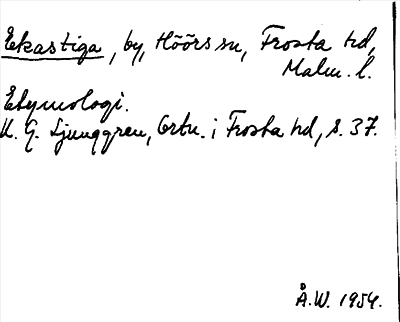 Ekastiga, by, Höörs sn, Frosta hd,
Malm. l.
Etymologi.
K. G. Ljunggren, Ortn. i Frosta hd, s. 37.
Å.W. 1954.